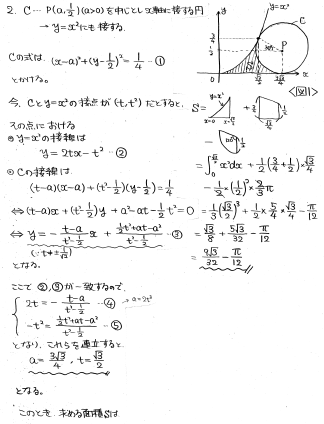 2. C… P(a, 1/2) (a>0) を中心とし x軸に接する円
→ y=x²にも接する.
Cの式は (x-a)²+(y-1/2)²=1/4 -①
とかける.
今, Cとy=x²の接点が (t, t²) だとすると,
その点における
◎ y=x²の接線は
y=2tx-t² -②
◎ Cの接線は
(t-a)(x-a)+(t²-1/2)(y-1/2)=1/4
⇔ (t-a)x+(t²-1/2)y+a²-at-1/2t²=0
⇔ y=-(t-a)/(t²-1/2)x+(1/2t²+at-a²)/(t²-1/2) -③
(∵ t≠±1/√2)
となる.
ここで ②,③が一致するので,
2t=-(t-a)/(t²-1/2) -④ → a=2t³
-t²=(1/2t²+at-a²)/(t²-1/2) -⑤
となり, これらを連立すると
a=3√3/4, t=√3/2
となる.
このとき 求める面積Sは
y=x²
C
P
y
x
3/4
1/2
0
√3/2
<図1>
S=
y=x²
x=0
x=√3/2
+
-
=∫0^√3/2 x²dx+1/2(3/4+1/2)×√3/4
-1/2×(1/2)²×2/3π
=1/3(√3/2)³+1/2×5/4×√3/4-π/12
=√3/8+5√3/32-π/12
=9√3/32-π/12